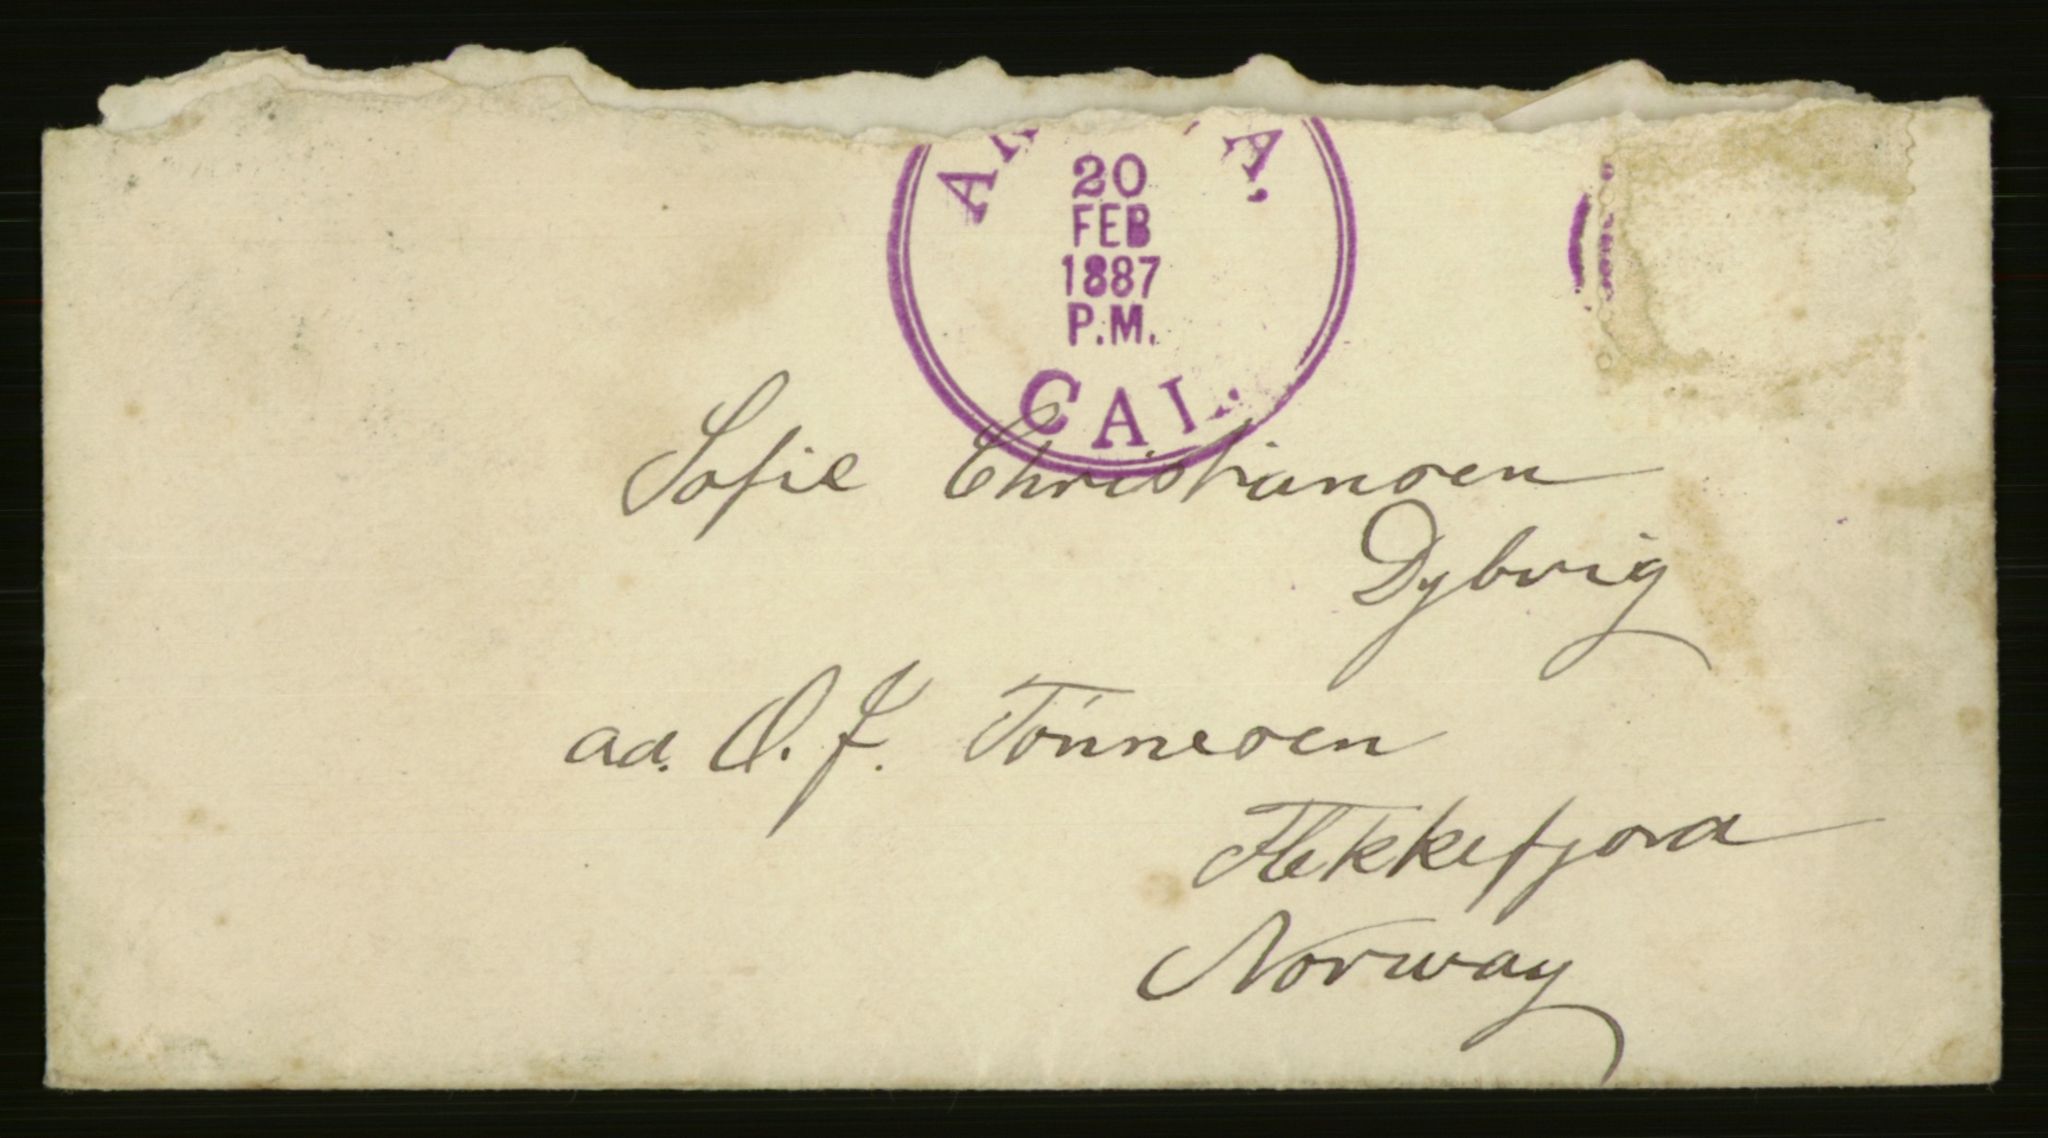 20
FEB
1887
P.M.
CAL.
Sofie Christiansen
Dybvig
ad. O. J. Tónnesen
Flekkefjord
Norway